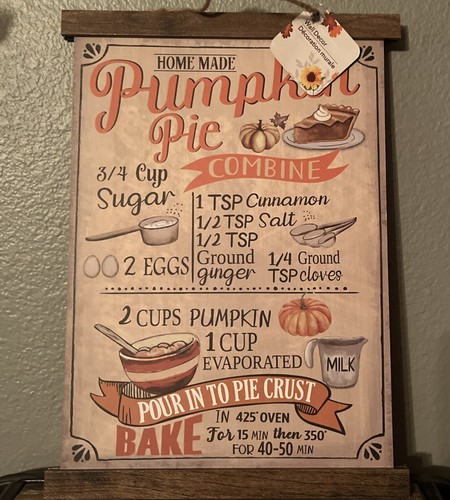 Wall Decor
Décoration murale
HOME MADE
Pumpkin
Pie
COMBINE
3/4 Cup
Sugar
1 TSP Cinnamon
1/2 TSP Salt
1/2 TSP
Ground
ginger
1/4 Ground
TSP cloves
2 EGGS
2 CUPS PUMPKIN
1 CUP
EVAPORATED
MILK
POUR IN TO PIE CRUST
BAKE
IN 425° OVEN
For 15 MIN then 350°
FOR 40-50 MIN